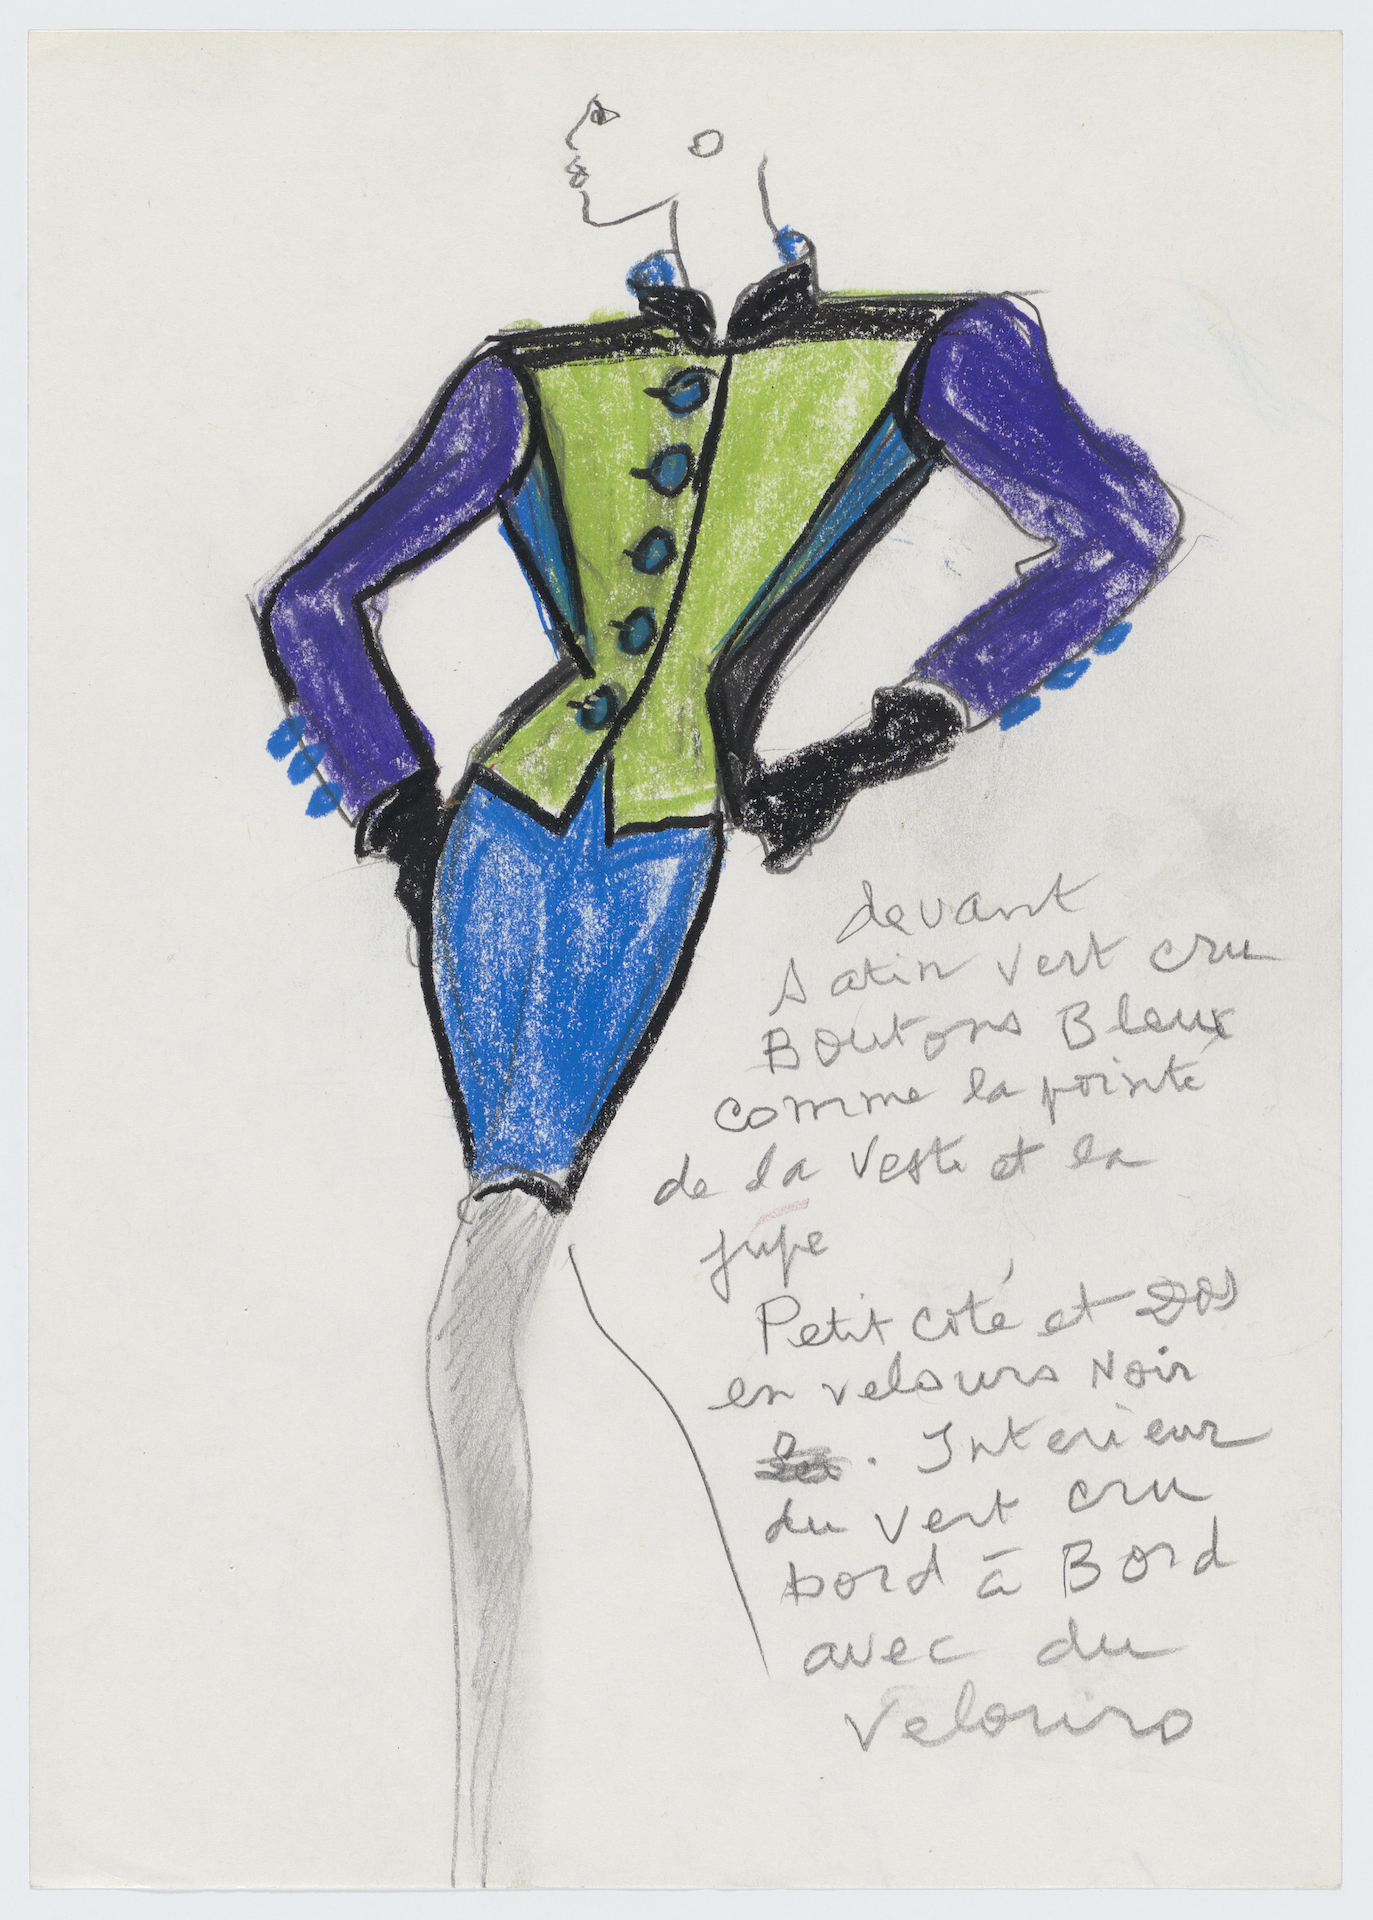 devant
Satin vert cru
Boutons Bleux
comme la pointe
de la Veste et la
jupe
Petit côté et Dos
en velours Noir
. Interieur
du vert cru
bord à Bord
avec du
Velours